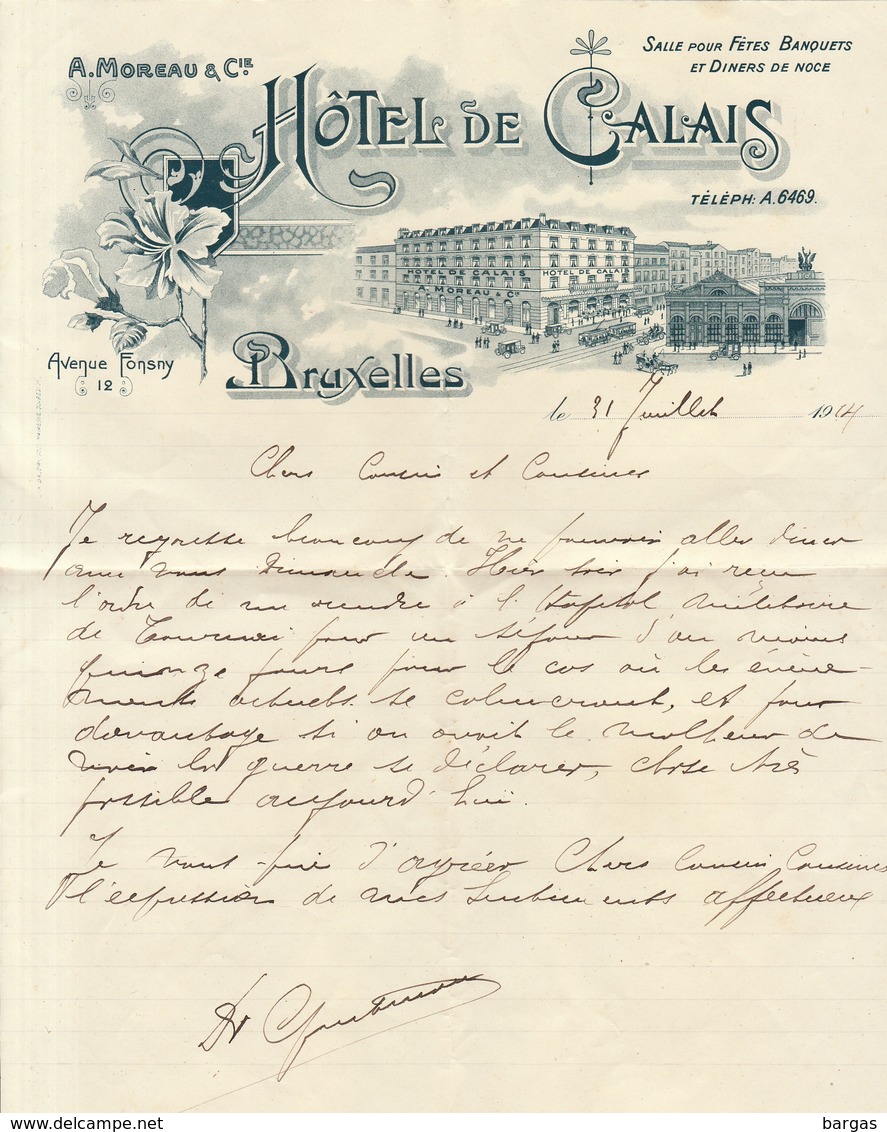 A. MOREAU & CIE.
SALLE POUR FÊTES BANQUETS
ET DINERS DE NOCE
HÔTEL DE CALAIS
TÉLÉPH: A.6469.
HOTEL DE CALAIS HOTEL DE CALAIS
A. MOREAU & Cº
Avenue Fonsny
12
Bruxelles
le 31 Juillet 1914
Chers Cousin et Cousines
Je regrette beaucoup de ne pouvoir aller diner
avec vous Dimanche. Hier soir j'ai reçu
l'ordre de me rendre à l'Hopital militaire
de Tournai pour un séjour d'au moins
quinze jours pour le cas où les événe-
ments actuels se calmeront, et pour
davantage si on avait le malheur de
voir la guerre se déclarer, chose très
possible aujourd'hui.
Je vous prie d'agréer Chers Cousin Cousines
l'expression de mes sentiments affectueux
Dr
delcampe.net
bargas